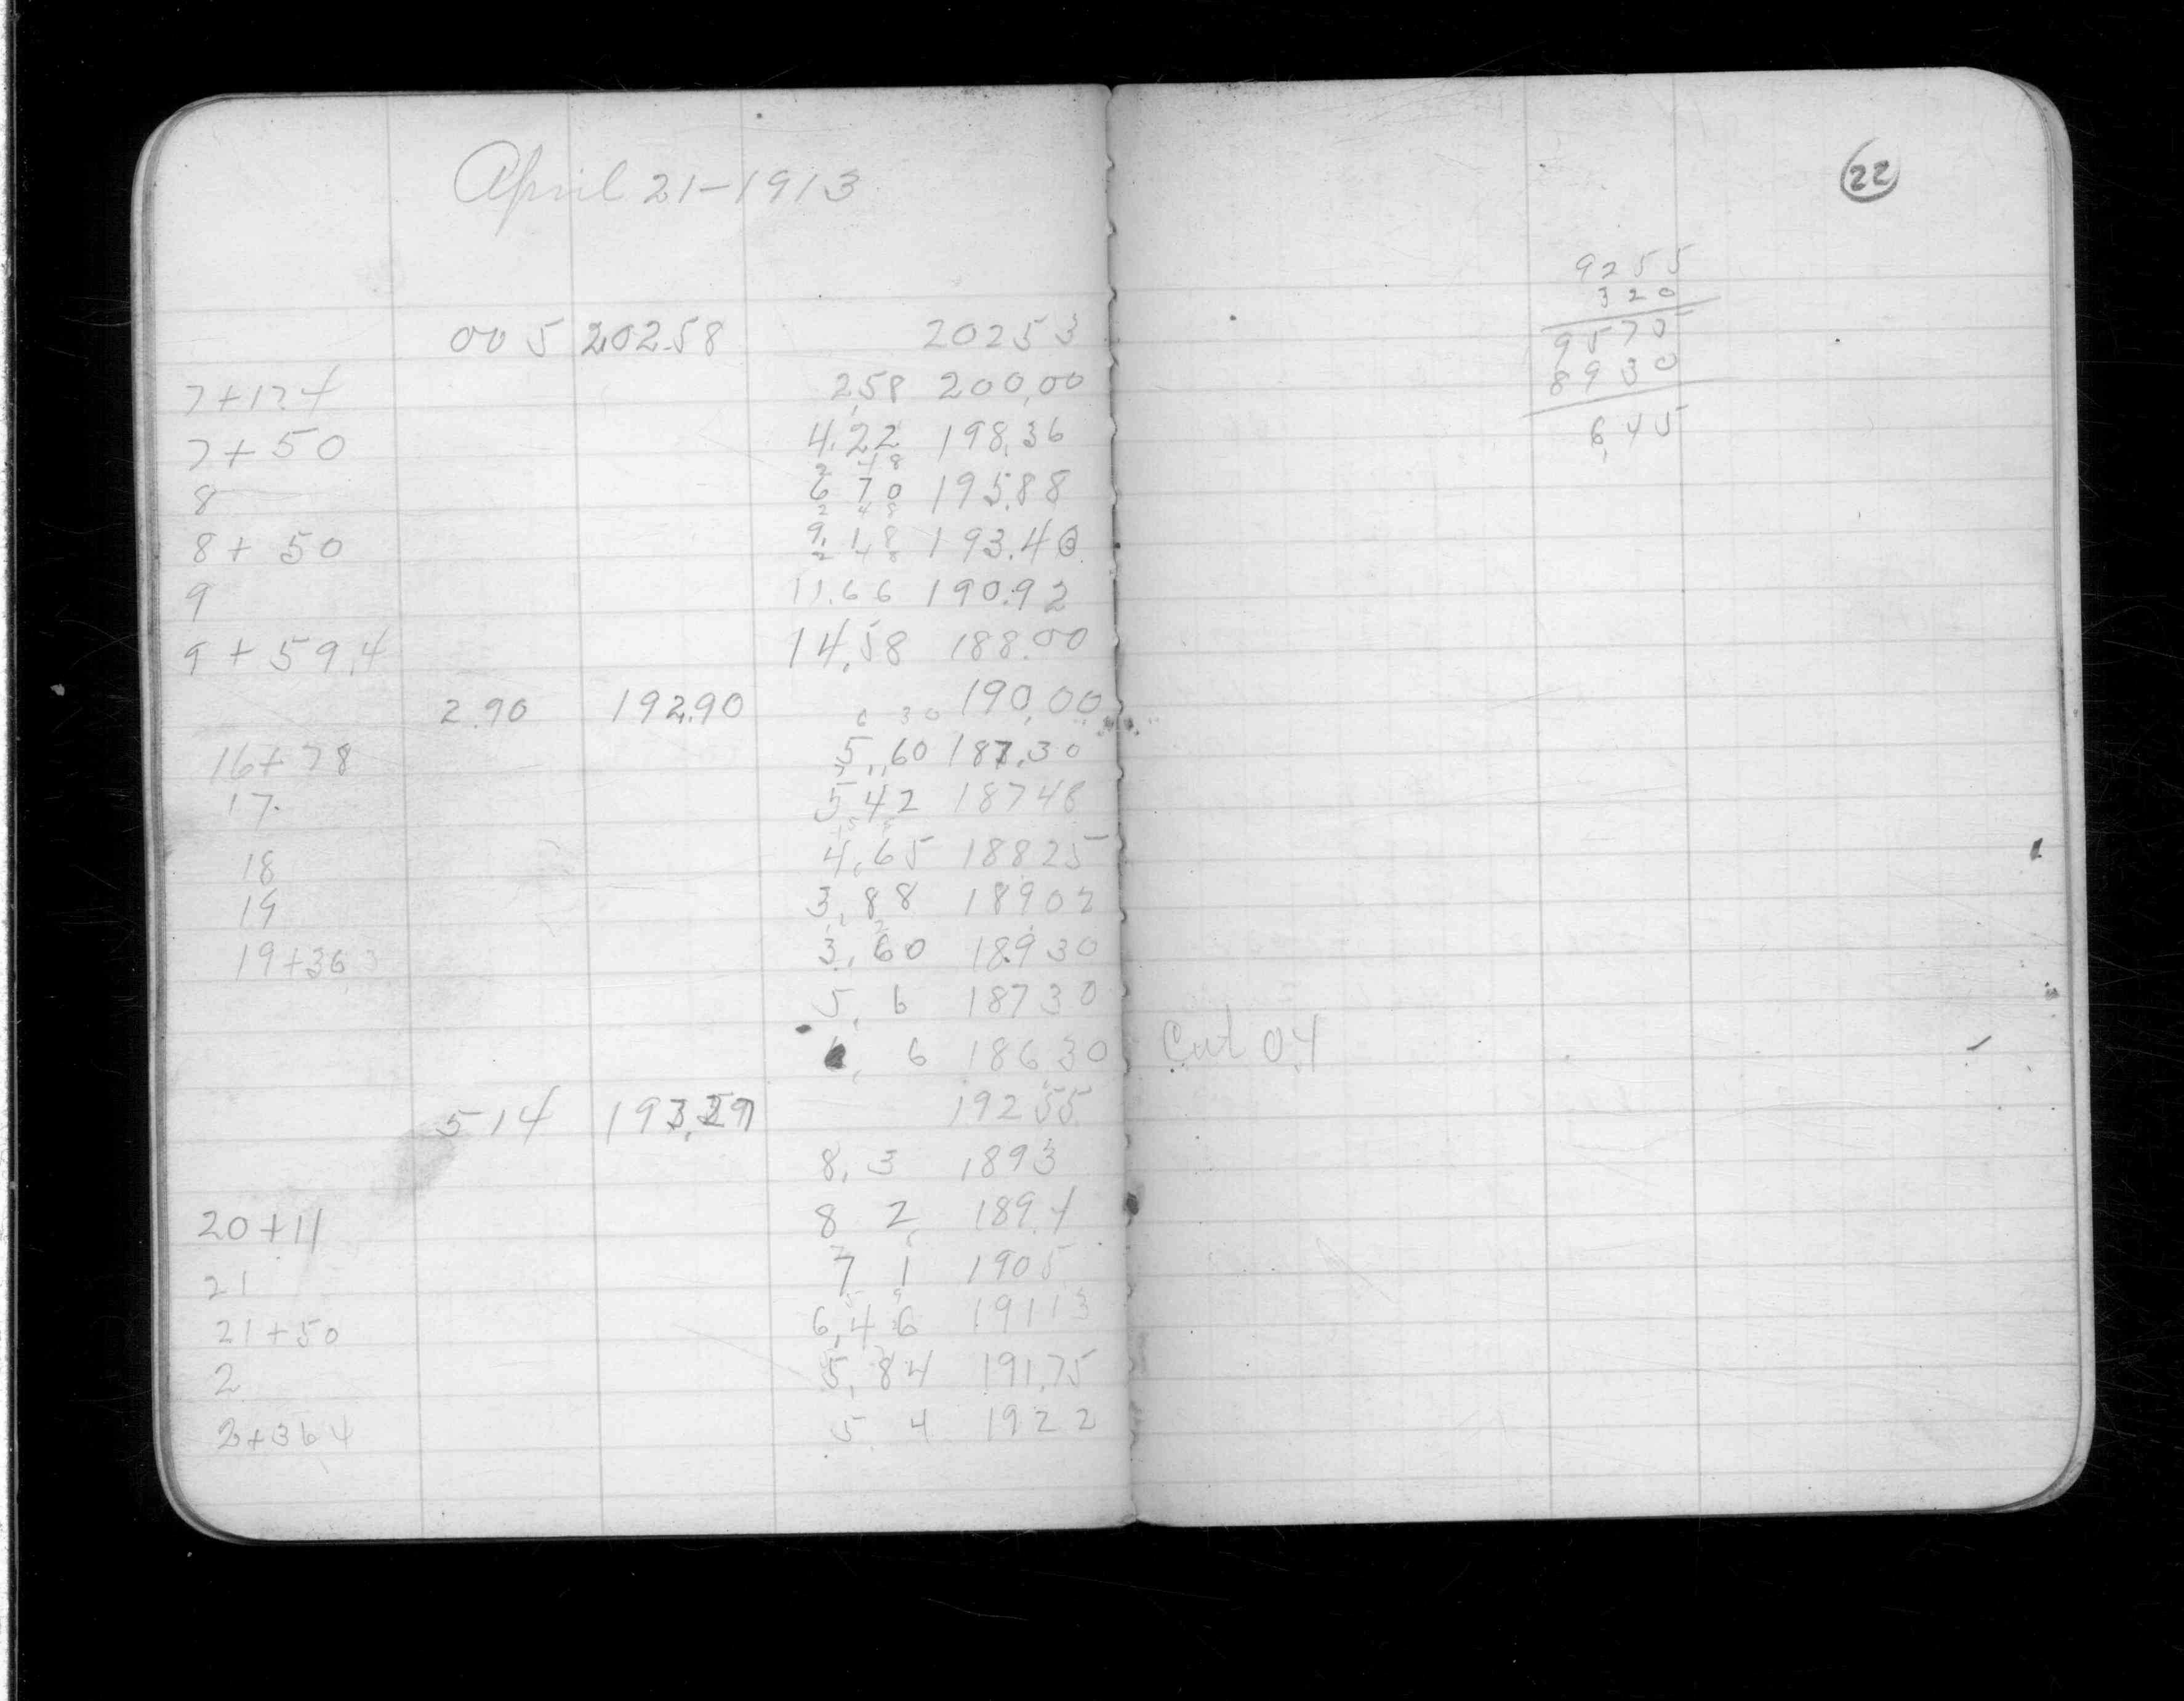 April 21-1913
005 202.58 20253
7+17.4 2,58 200,00
7+50 4.22 198.36
2 48
8 6 70 195.88
2 48
8+50 9.18 193.40
2 48
9 11.66 190.92
9+59.4 14.58 188.00
2.90 192.90 190.00
6 30
16+78 5.60 187.30
17. 5 42 18748
18 4.65 18825
19 3.88 18902
19+36 3 3.60 189 30
5. 6 18730
6 18630
514 193, 19255
8. 3 1893
20+11 8 2 189.4
21 7 1 1905
21+50 6,46 19113
2 5.84 191.75
+364 5 4 1922
22
9255
320
9575
8930
6,45
Cut 0.4